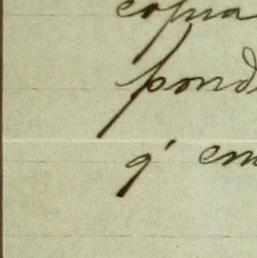 copia
pond
q' em